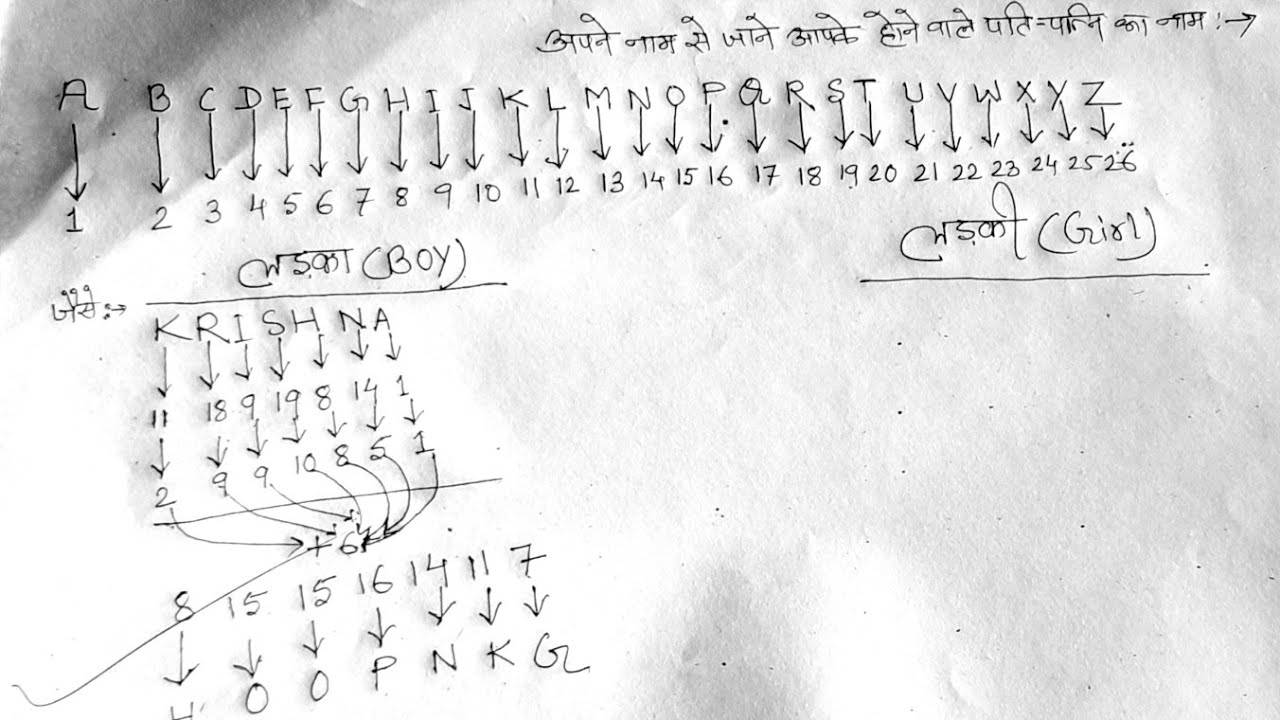 अपने नाम से जाने आपके होने वाले पति-पत्नि का नाम :→
A B C D E F G H I J K L M N O P Q R S T U V W X Y Z
↓ ↓ ↓ ↓ ↓ ↓ ↓ ↓ ↓ ↓ ↓ ↓ ↓ ↓ ↓ ↓ ↓ ↓ ↓ ↓ ↓ ↓ ↓ ↓ ↓ ↓
1 2 3 4 5 6 7 8 9 10 11 12 13 14 15 16 17 18 19 20 21 22 23 24 25 26
लड़का (BOY)
लड़की (Girl)
जैसे :→
K R I S H N A
↓ ↓ ↓ ↓ ↓ ↓ ↓
11 18 9 19 8 14 1
↓ ↓ ↓ ↓ ↓ ↓ ↓
2 9 9 10 8 5 1
+6
8 15 15 16 14 11 7
↓ ↓ ↓ ↓ ↓ ↓ ↓
H O O P N K G